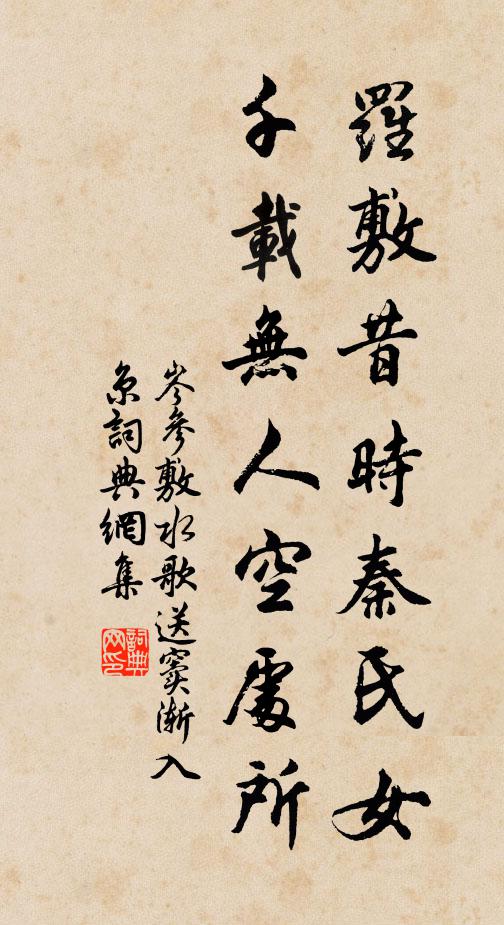 羅敷昔時秦氏女
千載無人空處所
岑參敷水歌送竇漸入
京詞典網集
詞典網印